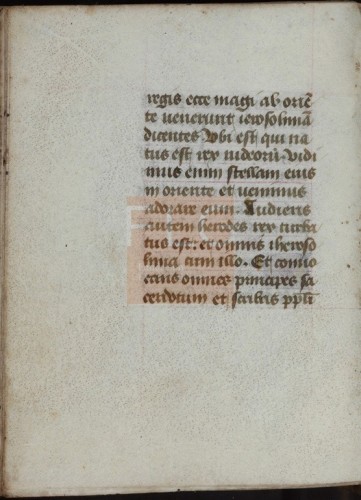 regis ecce magi ab oriẽ
te uenerunt ierosolimã
dicentes Vbi est qui na
tus est rex iudeorũ. Vidi
mus enim stellam eius
in oriente et uenimus
adorare eum. Audiens
autem herodes rex turba
tus est. et omnis iheroso
lima cum illo. Et conuo
cans omnes principes sa
cerdotum et scribas ppl̃i